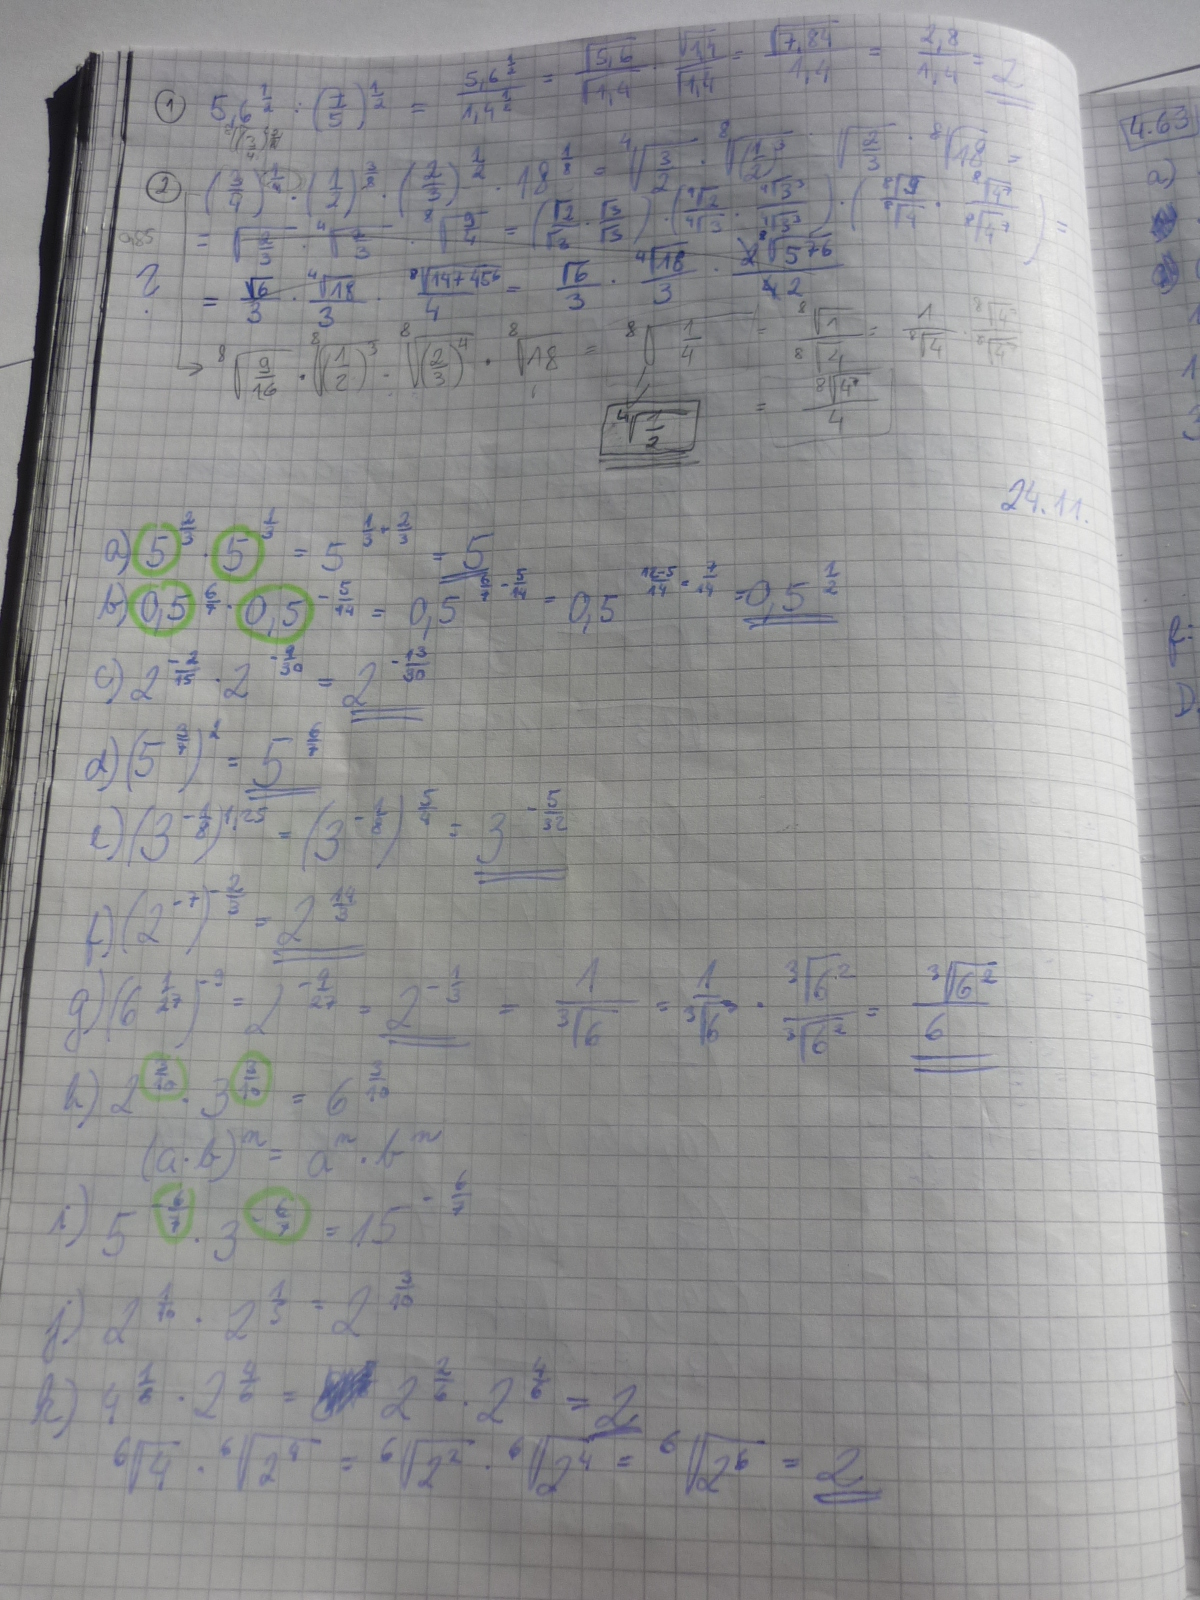 ① 5,6^{1/2} : (7/5)^{1/2} = 5,6^{1/2}/1,4^{1/2} = √5,6/√1,4 · √1,4/√1,4 = √7,84/1,4 = 2,8/1,4 = 2
② (3/4)^{1/4} · (1/2)^{3/8} · (2/3)^{1/2} · 18^{1/8} = ⁴√(3/2) · ⁸√(1/2)³ · √(2/3) · ⁸√18 =
= √(2/3) · ⁴√(2/3) · ⁸√(9/4) = (√2/√3 · √3/√3) · (⁴√2/⁴√3 · ⁴√3³/⁴√3³) · (⁸√9/⁸√4 · ⁸√4⁷/⁸√4⁷) =
? = √6/3 · ⁴√18/3 · ⁸√147456/4 = √6/3 · ⁴√18/3 · ⁸√576/2
→ ⁸√(9/16) · ⁸√(1/2)³ · ⁸√(2/3)⁴ · ⁸√18 = ⁸√(1/4) = ⁸√1/⁸√4 = 1/⁸√4 · ⁸√4⁷/⁸√4⁷
⁴√(1/2) = ⁸√4⁷/4
24.11.
a) 5^{2/3} · 5^{1/3} = 5^{1/3+2/3} = 5
b) 0,5^{6/7} · 0,5^{-5/14} = 0,5^{6/7-5/14} = 0,5^{12-5/14=7/14} = 0,5^{1/2}
c) 2^{-2/15} · 2^{-9/30} = 2^{-13/30}
d) (5^{3/7})^2 = 5^{6/7}
e) (3^{-1/8})^{1,25} = (3^{-1/8})^{5/4} = 3^{-5/32}
f) (2^{-7})^{-2/3} = 2^{14/3}
g) (6^{1/27})^{-9} = 2^{-9/27} = 2^{-1/3} = 1/³√6 = 1/³√6 · ³√6²/³√6² = ³√6²/6
h) 2^{3/10} · 3^{3/10} = 6^{3/10}
(a·b)^n = a^n · b^n
i) 5^{-6/7} · 3^{-6/7} = 15^{-6/7}
j) 2^{1/10} · 2^{1/5} = 2^{3/10}
k) 4^{1/6} · 2^{4/6} = 2^{2/6} · 2^{4/6} = 2
⁶√4 · ⁶√2⁴ = ⁶√2² · ⁶√2⁴ = ⁶√2⁶ = 2
4.63
a)